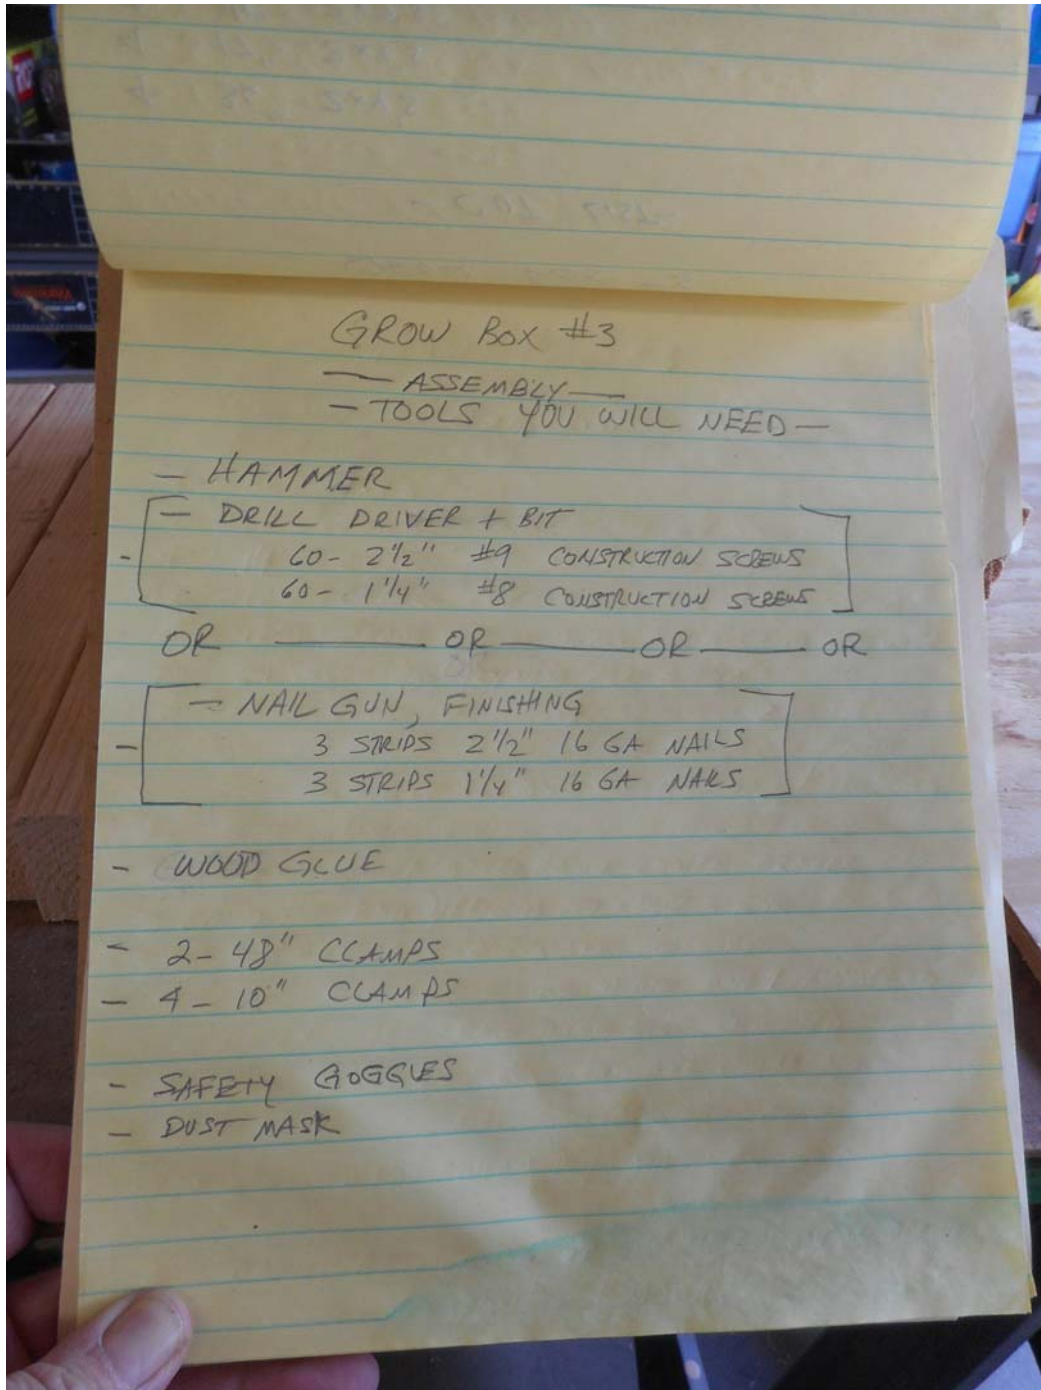 GROW BOX #3
— ASSEMBLY —
— TOOLS YOU WILL NEED —
— HAMMER
— DRILL DRIVER + BIT
- 60 - 2 1/2" #9 CONSTRUCTION SCREWS
60 - 1 1/4" #8 CONSTRUCTION SCREWS
OR ——— OR ——— OR ——— OR
— NAIL GUN, FINISHING
- 3 STRIPS 2 1/2" 16 GA NAILS
3 STRIPS 1 1/4" 16 GA NAILS
- WOOD GLUE
- 2 - 48" CLAMPS
- 4 - 10" CLAMPS
- SAFETY GOGGLES
- DUST MASK